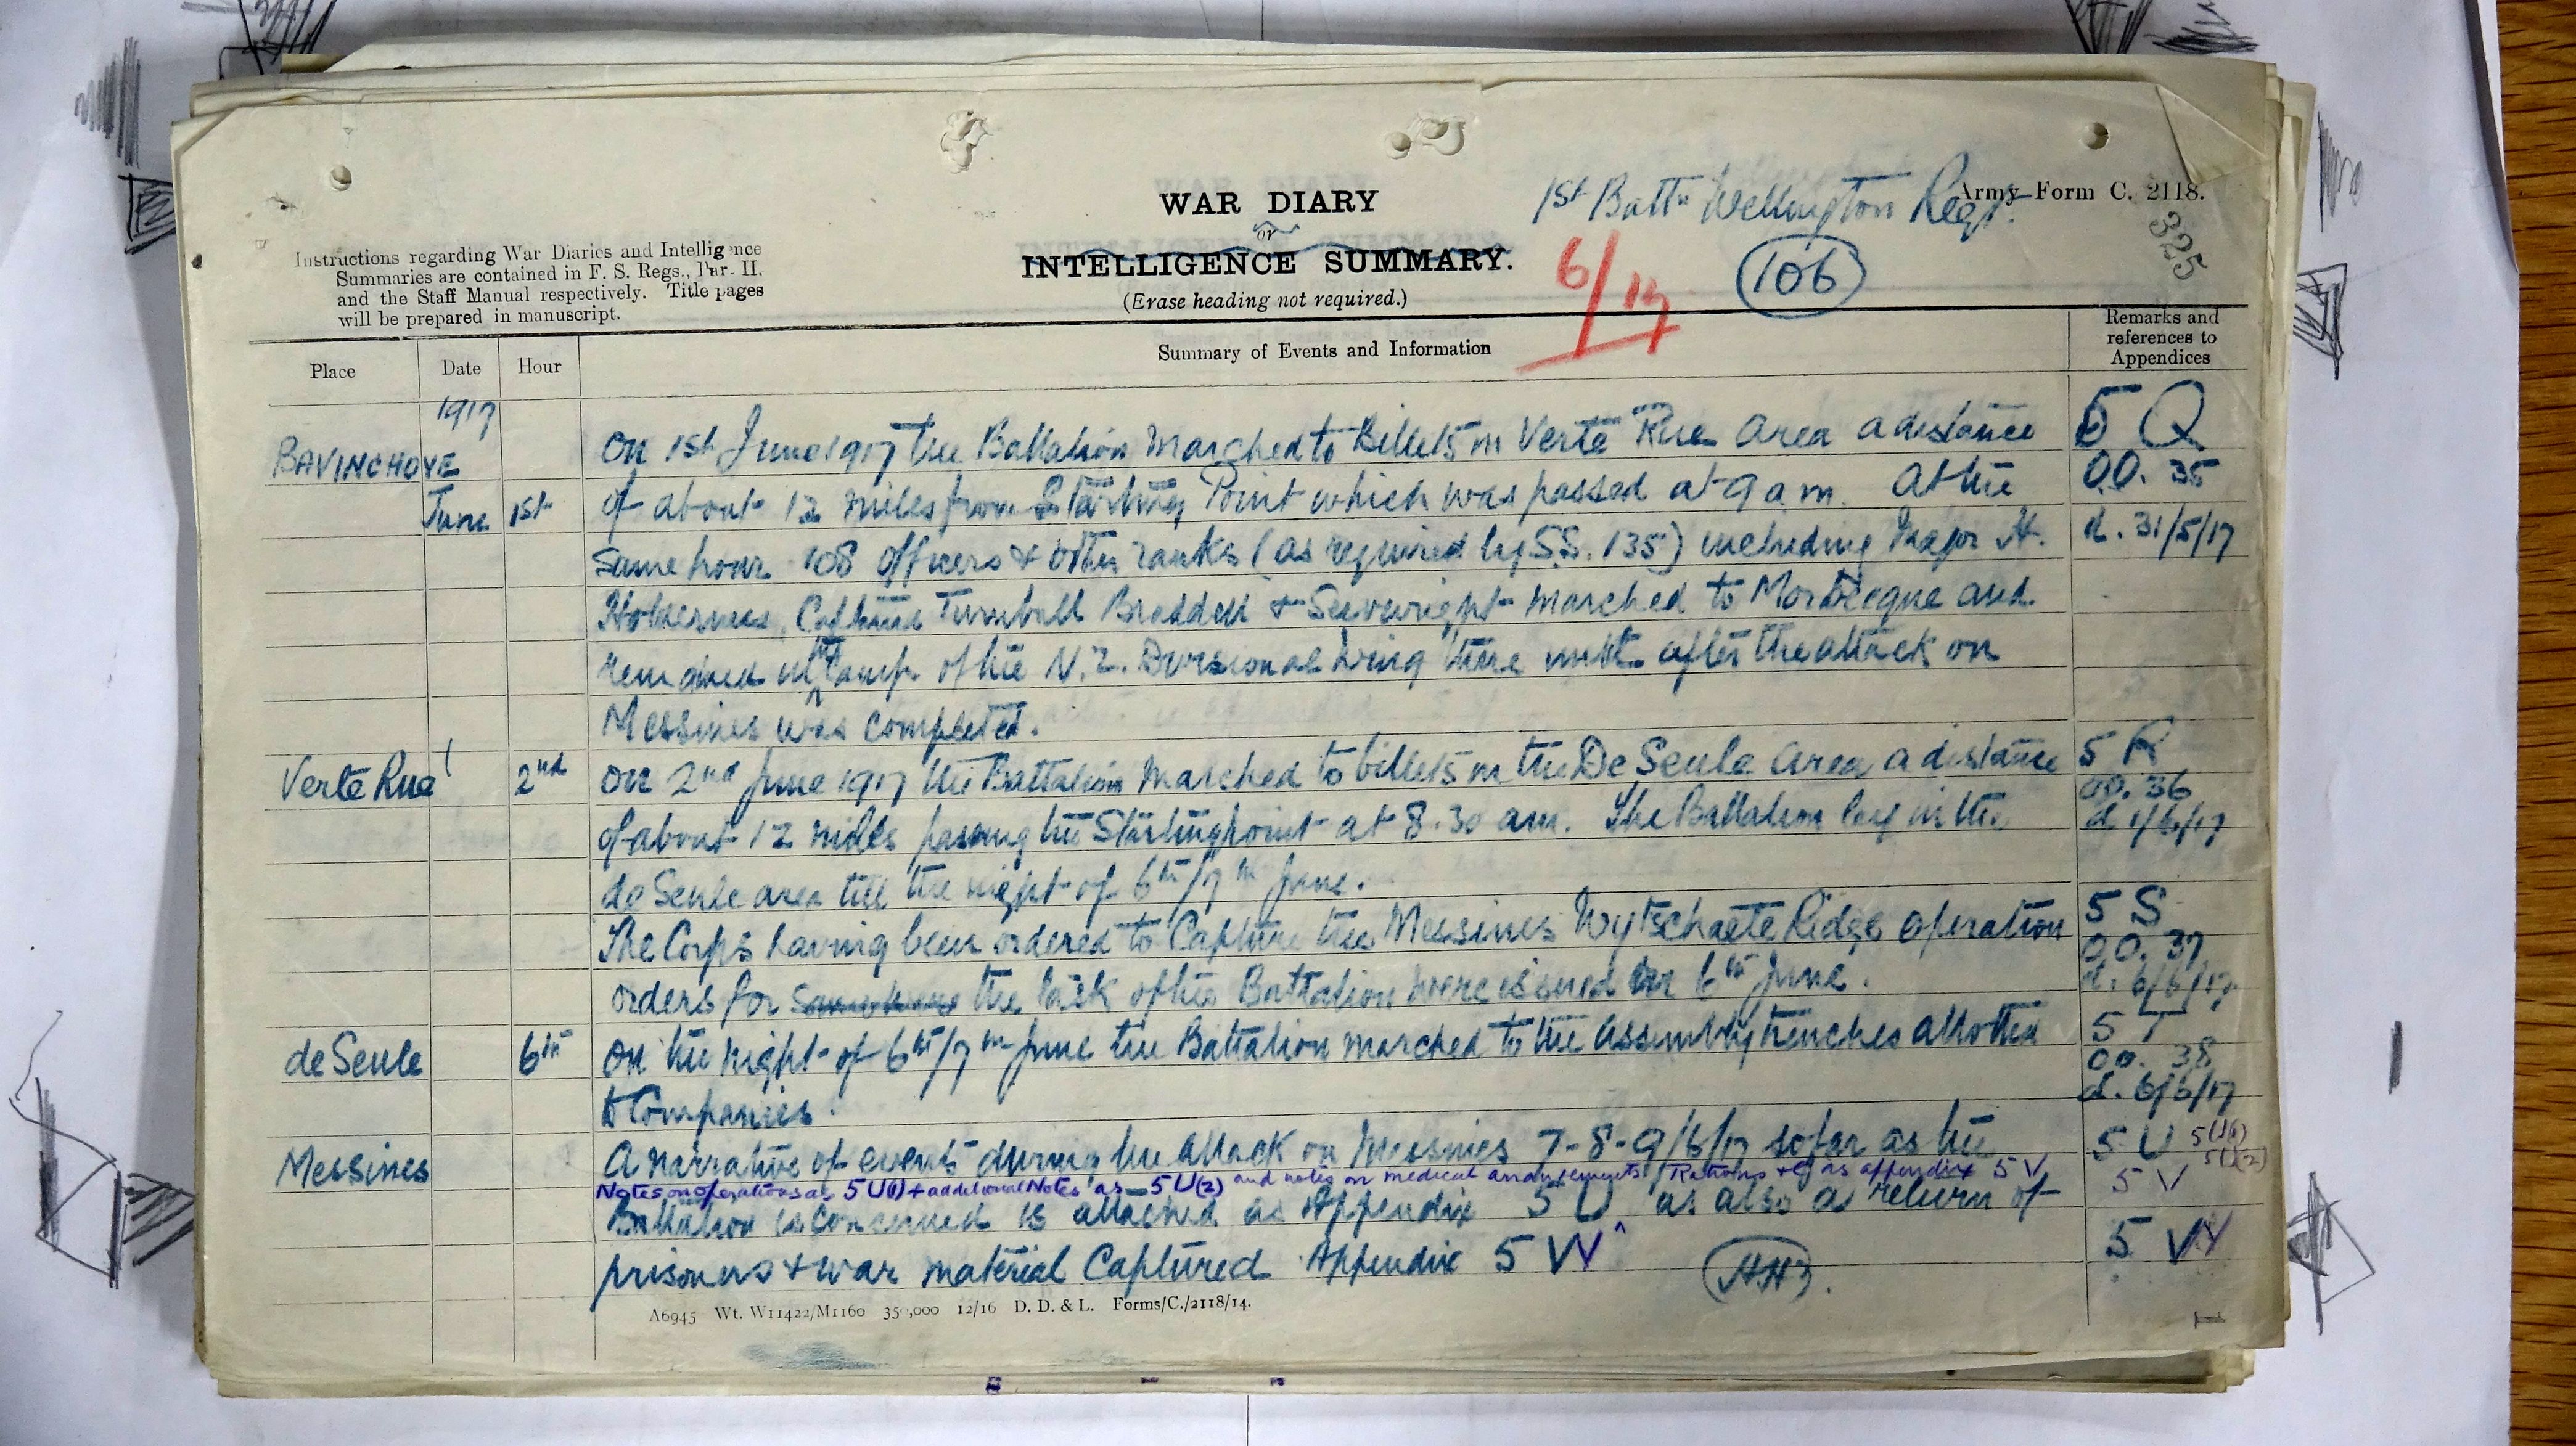 WAR DIARY
or
INTELLIGENCE SUMMARY.
(Erase heading not required.)
1st Battn Wellington Regt.
Army Form C. 2118.
325
6/17
106
Instructions regarding War Diaries and Intelligence
Summaries are contained in F. S. Regs., Par. II.
and the Staff Manual respectively. Title pages
will be prepared in manuscript.
Place Date Hour Summary of Events and Information Remarks and references to Appendices
1917
BAVINCHOVE On 1st June 1917 the Battalion Marched to Billets in Verte Rue Area a distance 5 Q
June 1st of about 12 miles from Starting Point which was passed at 9 am. At the O.O. 35
same hour 108 officers & other ranks (as required by S.S. 135) including Major H. d. 31/5/17
Holderness, Captains Turnbull Braddell & Seivewright marched to Morbecque and
remained in the camp of the N.Z. Divisional being there until after the attack on
Messines was completed.
Verte Rue 2nd On 2nd June 1917 the Battalion Marched to billets in the De Seule Area a distance 5 R
of about 12 miles passing the Starting point at 8.30 am. The Battalion lay in the OO. 36 d 1/6/17
de Seule area till the night of 6th/7th June.
The Corps having been ordered to Capture the Messines Wytschaete Ridge operation 5 S O.O. 37
orders for the task of the Battalion were issued on 6th June. d. 6/6/17
de Seule 6th On the night of 6th/7th June the Battalion marched to the assembly trenches allotted 5 T OO. 38
to Companies. d. 6/6/17
Messines A narrative of events during the attack on Messines 7-8-9/6/17 so far as the 5 U 5U(1) 5U(2)
Notes on operations as 5U(1) & additional Notes as 5U(2) and notes on medical arrangements, Rations &c as appendix 5V 5 V
Battalion is concerned is attached as Appendix 5 U as also a return of
prisoners & war material Captured Appendix 5 W 5 W
A6945 Wt. W11422/M1160 350,000 12/16 D. D. & L. Forms/C./2118/14.